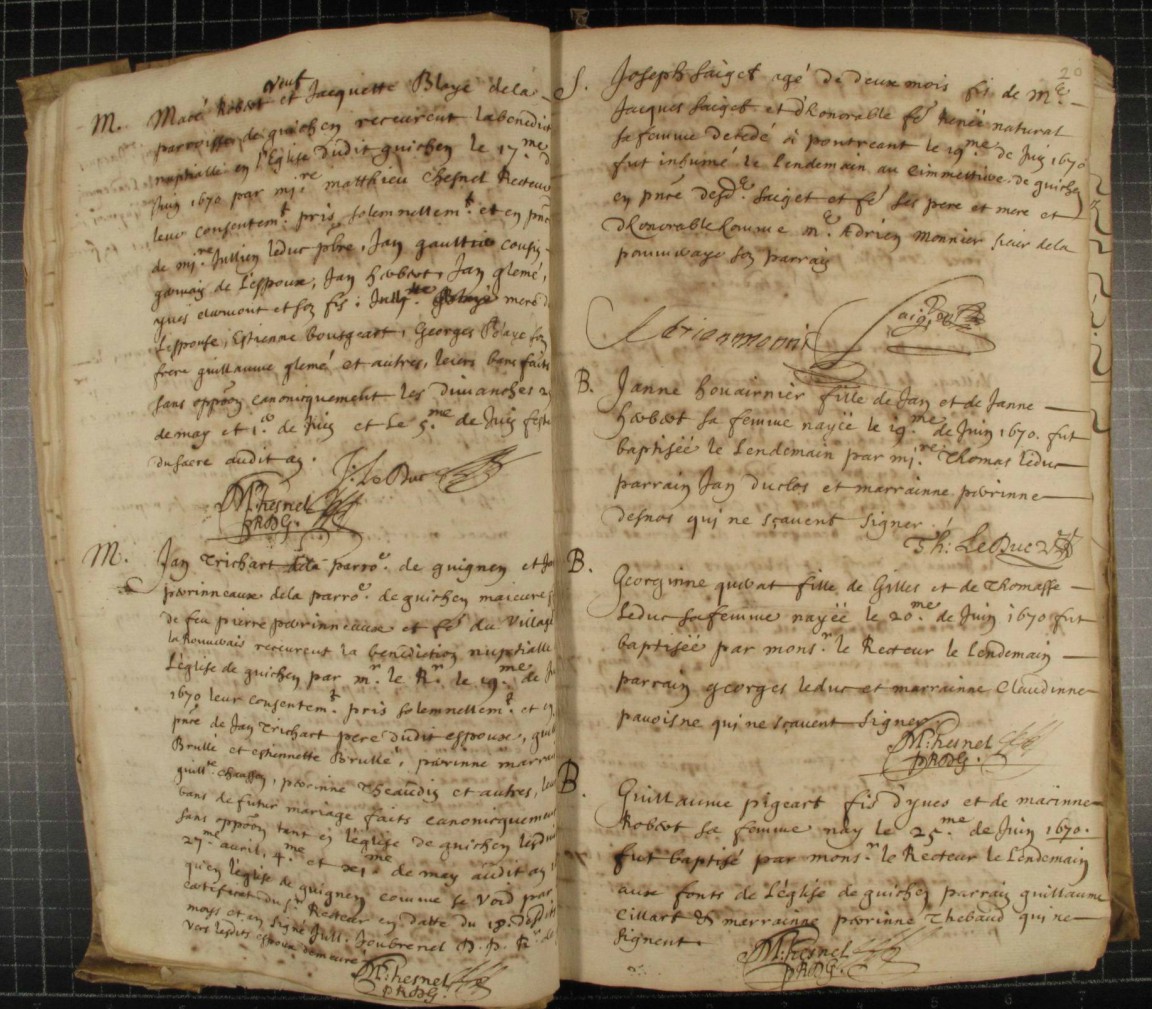 veuf
M. Macé Robert et Jacquette Blaye dela
parroisse de guichen receurent la benedict
nuptialle en l'Eglise dudit guichen le 17.me d
Juin 1670 par mi.re matthieu Chesnel Recteur
leur consentem.t pris solemnellem.t et en pnce
de mi.re Jullien leduc pbre, Jan gaultier cousin
germain de L'espoux, Jan herbert, Jan glemé,
yves clermont et son fis, mere
L'espouse, Estienne bourgeart, Georges Blaye son
frere guillaume glemé et autres, leurs bans faits
sans oppoon canonicquement les dimanches 25
de may et 1.er de Juin et Le 5.me de Juin feste
du sacre audit an.
J. Le Duc
M: Chesnel
pRDG.
M. Jan Trichart parro.e de guignen et Ja
perrinneaux dela parro.e de guichen maieure f
de feu pierre perrinneaux et fe du village
receurent la benediction nuptialle
L'eglise de guichen par m.r le R.r le 19.me de Ju
1670 leur consentem.t pris solemnellem.t et en
pnce de Jan Trichart pere dudit espoux, guil
Brullé et estiennette Brullé, perrinne marr
guill.e chausson, perrinne Theaudin et autres, leur
bans de futur mariage faits canonicquement
sans oppoon tant en l'eglise de guichen lesdim
27.me avril, 4.e et xi.me de may audit an
qu'en leglise de guignen comme se void par
certificat du sr Recteur en datte du 18.
moys et an signé Jull. Joubrenel
vers lesdits espoux demeuré
M: Chesnel
pRDG.
20
S. Joseph Saiget agé de deux mois fis de M.e
Jacques Saiget et d'honorable fe Renée natural
sa femme decedé à pontreant le 19.me de Juin 1670
fut inhumé le Lendemain au Cimmetiere de guichen
en pnce desd. Saiget et fe ses pere et mere et
d'honorable homme m.e Adrien Monnier sieur dela
son parrain
Adrien monnier Saiget
B. Janne houairnier fille de Jan et de Janne
herbert sa femme nayëe le 19.me de Juin 1670. fut
baptisée le Lendemain par mi.re Thomas leduc
parrain Jan duclos et marrainne perrinne
desnos qui ne sçavent signer
Th: Le Duc
B. Georginne fille de Gilles et de Thomasse
Leduc sa femme nayëe le 20.me de Juin 1670 fut
baptisëe par mons.r le Recteur le Lendemain
parrain georges leduc et marrainne Claudinne
pavoisne qui ne sçavent signer
M: Chesnel
pRDG.
B. Guillaume pigeart fis d'yves et de marinne
Robert sa femme nay le 25.me de Juin 1670.
fut baptisé par mons.r le Recteur le Lendemain
aux fonts de L'église de guichen parrain guillaume
Cillart & marrainne perrinne Thebaud qui ne
signent
M: Chesnel
pRDG.